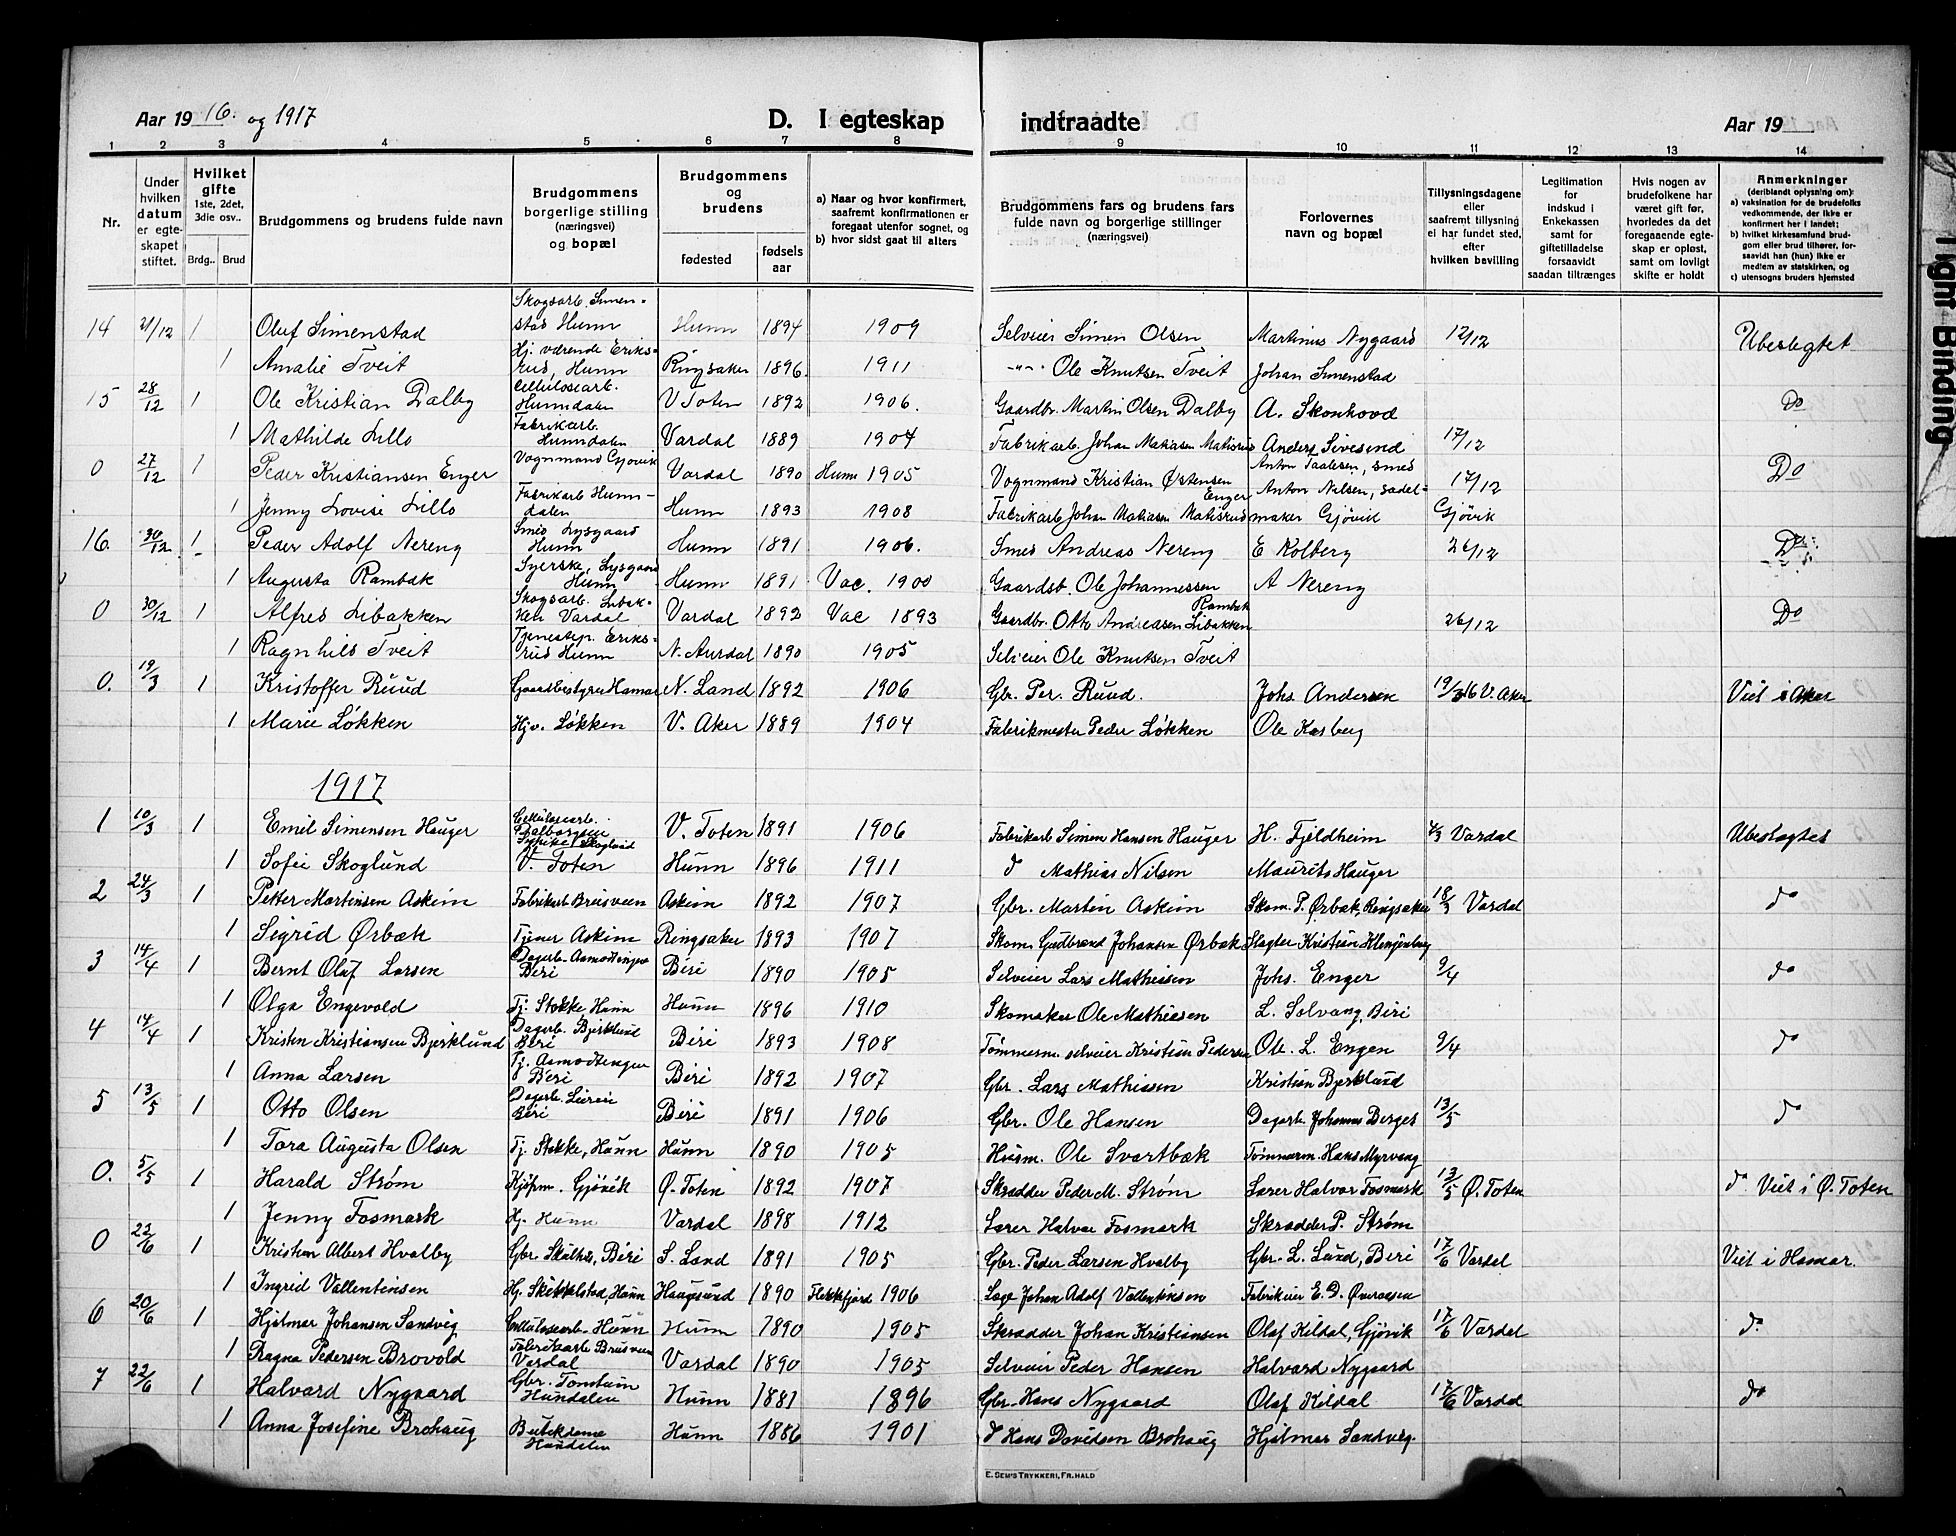 Aar 1916. og 1917 D. I egteskap indtraadte Aar 19
1 2 3 4 5 6 7 8 9 10 11 12 13 14
Nr. | Under hvilken datum er egteskapet stiftet. | Hvilket gifte 1ste, 2det, 3die osv.. Brdg.. Brud | Brudgommens og brudens fulde navn | Brudgommens borgerlige stilling (næringsvei) og bopæl | Brudgommens og brudens fødested | fødselsaar | a) Naar og hvor konfirmert, saafremt konfirmationen er foregaat utenfor sognet, og b) hvor sidst gaat til alters | Brudgommens fars og brudens fars fulde navn og borgerlige stillinger (næringsvei) | Forlovernes navn og bopæl | Tillysningsdagene eller saafremt tillysning ei har fundet sted, efter hvilken bevilling | Legitimation for indskud i Enkekassen samt for giftetilladelse forsaavidt saadan tiltrænges | Hvis nogen av brudefolkene har været gift før, hvorledes da det foregaaende egteskap er opløst, samt om lovligt skifte er holdt | Anmerkninger (deriblandt oplysning om): a) vaksination for de brudefolks vedkommende, der ikke er konfirmert her i landet; b) hvilket kirkesamfund brudgom eller brud tilhører, forsaavidt han (hun) ikke er medlem av statskirken, og c) utensogns bruders hjemsted
14 21/12 1 Oluf Simenstad Skogsarb. Simenstad Hunn Hunn 1894 1909 Selveier Simen Olsen Martinus Nygaard 12/12 Ubeslegtet
1 Amalie Tveit Hj. værende Eriksrud, Hunn Ringsaker 1896. 1911 -"- Ole Knutsen Tveit Johan Simenstad
15 28/12 1 Ole Kristian Dalby Cellulosearb. Hunndalen V Toten 1892 1906. Gaardbr. Martin Olsen Dalby A. Skonhovd Do
1 Mathilde Lillo Fabrikarb. Hunndalen Vardal 1889 1904 Fabrikarb. Johan Matiasen Matisrud Anders Sivesind 17/12
0 27/12 1 Peder Kristiansen Enger Vognmand Gjøvik Vardal 1890 Hunn 1905 Vognmand Kristian Østensen Enger Anton Paalesen, smed 17/12 Do
1 Jenny Lovise Lillo Fabrikarb Hunndalen Hunn 1893 1908 Fabrikarb Johan Matiasen Matisrud Anton Nilsen, sadelmaker Gjøvik Gjøvik
16. 30/12 1 Peder Adolf Nereng Smed Lysgaard Hunn Hunn 1891 1906. Smed Andreas Nereng E Kolberg 26/12 Do
1 Augusta Rambæk Syerske, Lysgaard Hunn Hunn 1891 Vac. 1900 Gaardsb. Ole Johannessen Rambæk A Nereng
0 30/12 1 Alfred Libakken Skogsarb. Libakken Vardal Vardal 1892 Vac 1893 Gaardbr. Otto Andreasen Libakken 26/12 Do
1 Ragnhild Tveit Tjenestep. Eriksrud Hunn N. Aurdal 1890 1905 Selveier Ole Knutsen Tveit
0. 19/3 1 Kristoffer Ruud Gaardbestyrer Hamar N. Land 1892 1906 Gbr. Per. Ruud. Johs. Andersen 19/3 16 V. Aker Viet i Aker
1 Marie Løkken Hjv. Løkken V. Aker 1889 1904 Fabrikmester Peder Løkken Ole Kasberg
1917
1 10/3 1 Emil Simensen Hauger Cellulosearb. V. Toten 1891 1906 Fabrikarb Simen Hansen Hauger H. Fjeldheim 4/3 Vardal Ubeslegtet
1 Sofie Skoglund V. Toten Hunn 1896 1911 d Mathias Nilsen Maurits Hauger
2 24/3 1 Petter Martinsen Askim Fabrikarb Brusveen Askim 1892 1907 Gbr. Martin Askim Skom. P. Ørbæk, Ringsaker 18/3 Vardal do
1 Sigrid Ørbæk Tjener Askim Ringsaker 1893 1907 Skom. Gudbrand Johansen Ørbæk Slagter Kristian Klengenberg
3 14/4 1 Bernt Olaf Larsen Dagarb. Asmodtengen Biri Biri 1890 1905 Selveier Lars Mathiesen Johs. Enger 9/4 do
1 Olga Engevold Tj. Stokke Hunn Hunn 1896 1910 Skomaker Ole Mathiesen L. Solvang, Biri
4 14/4 1 Kristen Kristiansen Bjerklund Dagarb. Bjerklund Biri Biri 1893 1908 Tømmerm. selveier Kristian Pedersen Ole. L. Engen 9/4 do
1 Anna Larsen Tj. Asmodtengen Biri Biri 1892 1907 Gbr. Lars Mathiesen Kristian Bjerklund
5 13/5 1 Otto Olsen Dagarb. Biri Biri 1891 1906 Gbr. Ole Hansen Dagarb. Johannes Berget 13/5 do
1 Tora Augusta Olsen Tj. Stokke, Hunn Hunn 1890 1905 Husm. Ole Svartbæk Tømmerm. Hans Myrvang
0. 5/5 1 Harald Strøm Kjøpm. Gjøvik Ø. Toten 1892 1907 Skrædder Peder M. Strøm Lærer Halvor Fosmark 13/5 Ø. Toten do Viet i Ø. Toten
1 Jenny Fosmark Hj. Hunn Vardal 1898 1912 Lærer Halvor Fosmark Skrædder P. Strøm
0 22/6 1 Kristian Albert Hvalby Gbr. Skulhus, Biri S. Land 1891 1905 Gbr. Peder Larsen Hvalby Gbr. L. Lund, Biri 17/6 Vardal Viet i Hamar.
1 Ingrid Vallentinsen Hj. Skikkelstad, Hunn Haugesund 1890 Flekkefjord 1906 Johan Adolf Vallentinsen Fabrikeier E. D.
6 20/6 1 Hjalmar Johansen Sandvig Cellulosearb. Hunn Hunn 1890 1905 Skrædder Johan Kristiansen Olaf Kildal, Gjøvik 17/6 Vardal do
1 Ragna Pedersen Brovold Fabrikarb. Brusveen Vardal Vardal 1890 1905 Selveier Peder Hansen Halvard Nygaard
7 22/6 1 Halvard Nygaard Gbr. Hundalen Hunn 1881 1896 Gbr. Hans Nygaard Olaf Kildal 17/6 Vardal do
1 Anna Josefine Brohaug Butikdame Hundalen Hunn 1886 1901 d Hans Davidsen Brohaug Hjalmar Sandvig.
E. SEM'S TRYKKERI, FR.HALD
Tight Binding